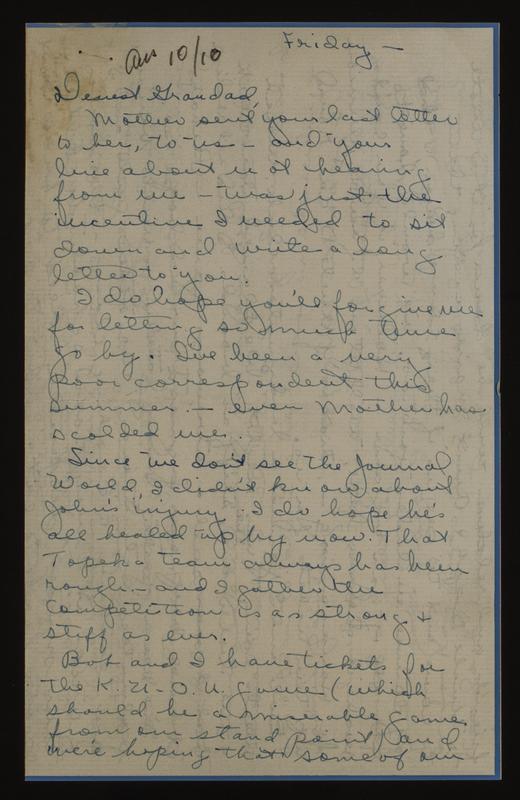 Ans 10/10
Friday —
Dearest Grandad,
Mother sent your last letter
to her, to us — and your
line about not hearing
from me — was just the
incentive I needed to sit
down and write a long
letter to you.
I do hope you'll forgive me
for letting so much time
go by. I've been a very
poor correspondent this
summer. — even Mother has
scolded me.
Since we don't see the Journal
World, I didn't know about
John's injury. I do hope he's
all healed up by now. That
Topeka team always has been
rough — and I gather the
competition is as strong +
stiff as ever.
Bob and I have tickets for
the K.U-O.U. game (which
should be a miserable game
from our stand point) and
we're hoping that some of our